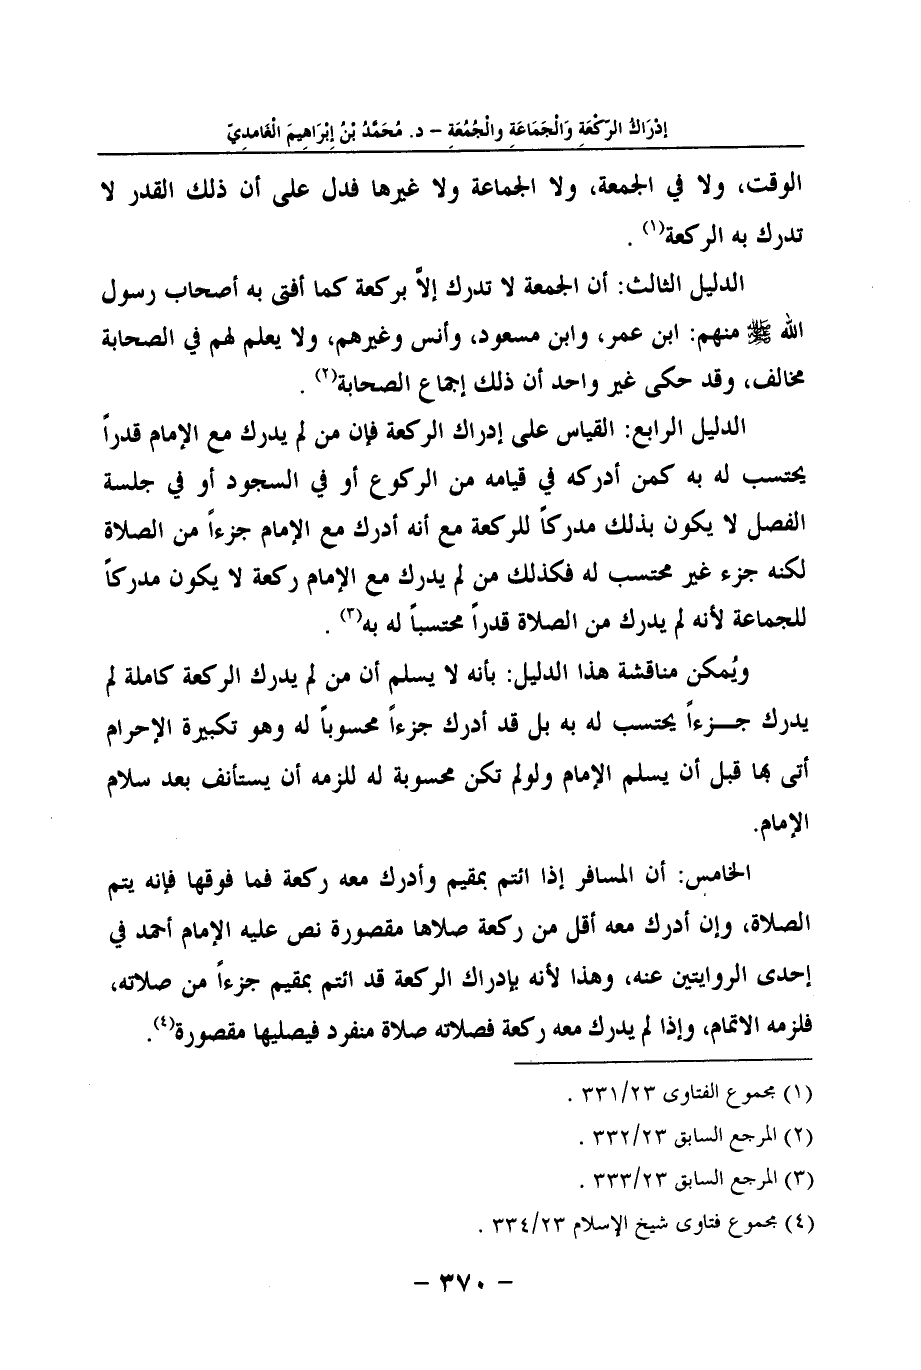 إدْرَاكُ الرَّكْعَةِ وَالْجَمَاعَةِ والْجُمُعَةِ – د. مُحَمَّدُ بْنُ إِبْرَاهِيمَ الْغَامِدِيّ
الوقت، ولا في الجمعة، ولا الجماعة ولا غيرها فدل على أن ذلك القدر لا
تدرك به الركعة(١) .
الدليل الثالث: أن الجمعة لا تدرك إلاَّ بركعة كما أفتى به أصحاب رسول
الله ﷺ منهم: ابن عمر، وابن مسعود، وأنس وغيرهم، ولا يعلم لهم في الصحابة
مخالف، وقد حكى غير واحد أن ذلك إجماع الصحابة(٢) .
الدليل الرابع: القياس على إدراك الركعة فإن من لم يدرك مع الإمام قدراً
يحتسب له به كمن أدركه في قيامه من الركوع أو في السجود أو في جلسة
الفصل لا يكون بذلك مدركاً للركعة مع أنه أدرك مع الإمام جزءاً من الصلاة
لكنه جزء غير محتسب له فكذلك من لم يدرك مع الإمام ركعة لا يكون مدركاً
للجماعة لأنه لم يدرك من الصلاة قدراً محتسباً له به(٣) .
ويُمكن مناقشة هذا الدليل: بأنه لا يسلم أن من لم يدرك الركعة كاملة لم
يدرك جـــزءاً يحتسب له به بل قد أدرك جزءاً محسوباً له وهو تكبيرة الإحرام
أتى بها قبل أن يسلم الإمام ولولم تكن محسوبة له للزمه أن يستأنف بعد سلام
الإمام.
الخامس: أن المسافر إذا ائتم بمقيم وأدرك معه ركعة فما فوقها فإنه يتم
الصلاة، وإن أدرك معه أقل من ركعة صلاها مقصورة نص عليه الإمام أحمد في
إحدى الروايتين عنه، وهذا لأنه بإدراك الركعة قد ائتم بمقيم جزءاً من صلاته،
فلزمه الاتمام، وإذا لم يدرك معه ركعة فصلاته صلاة منفرد فيصليها مقصورة(٤).
(١) مجموع الفتاوى ٣٣١/٢٣ .
(٢) المرجع السابق ٣٣٢/٢٣ .
(٣) المرجع السابق ٣٣٣/٢٣ .
(٤) مجموع فتاوى شيخ الإسلام ٣٣٤/٢٣ .
– ٣٧٠ –